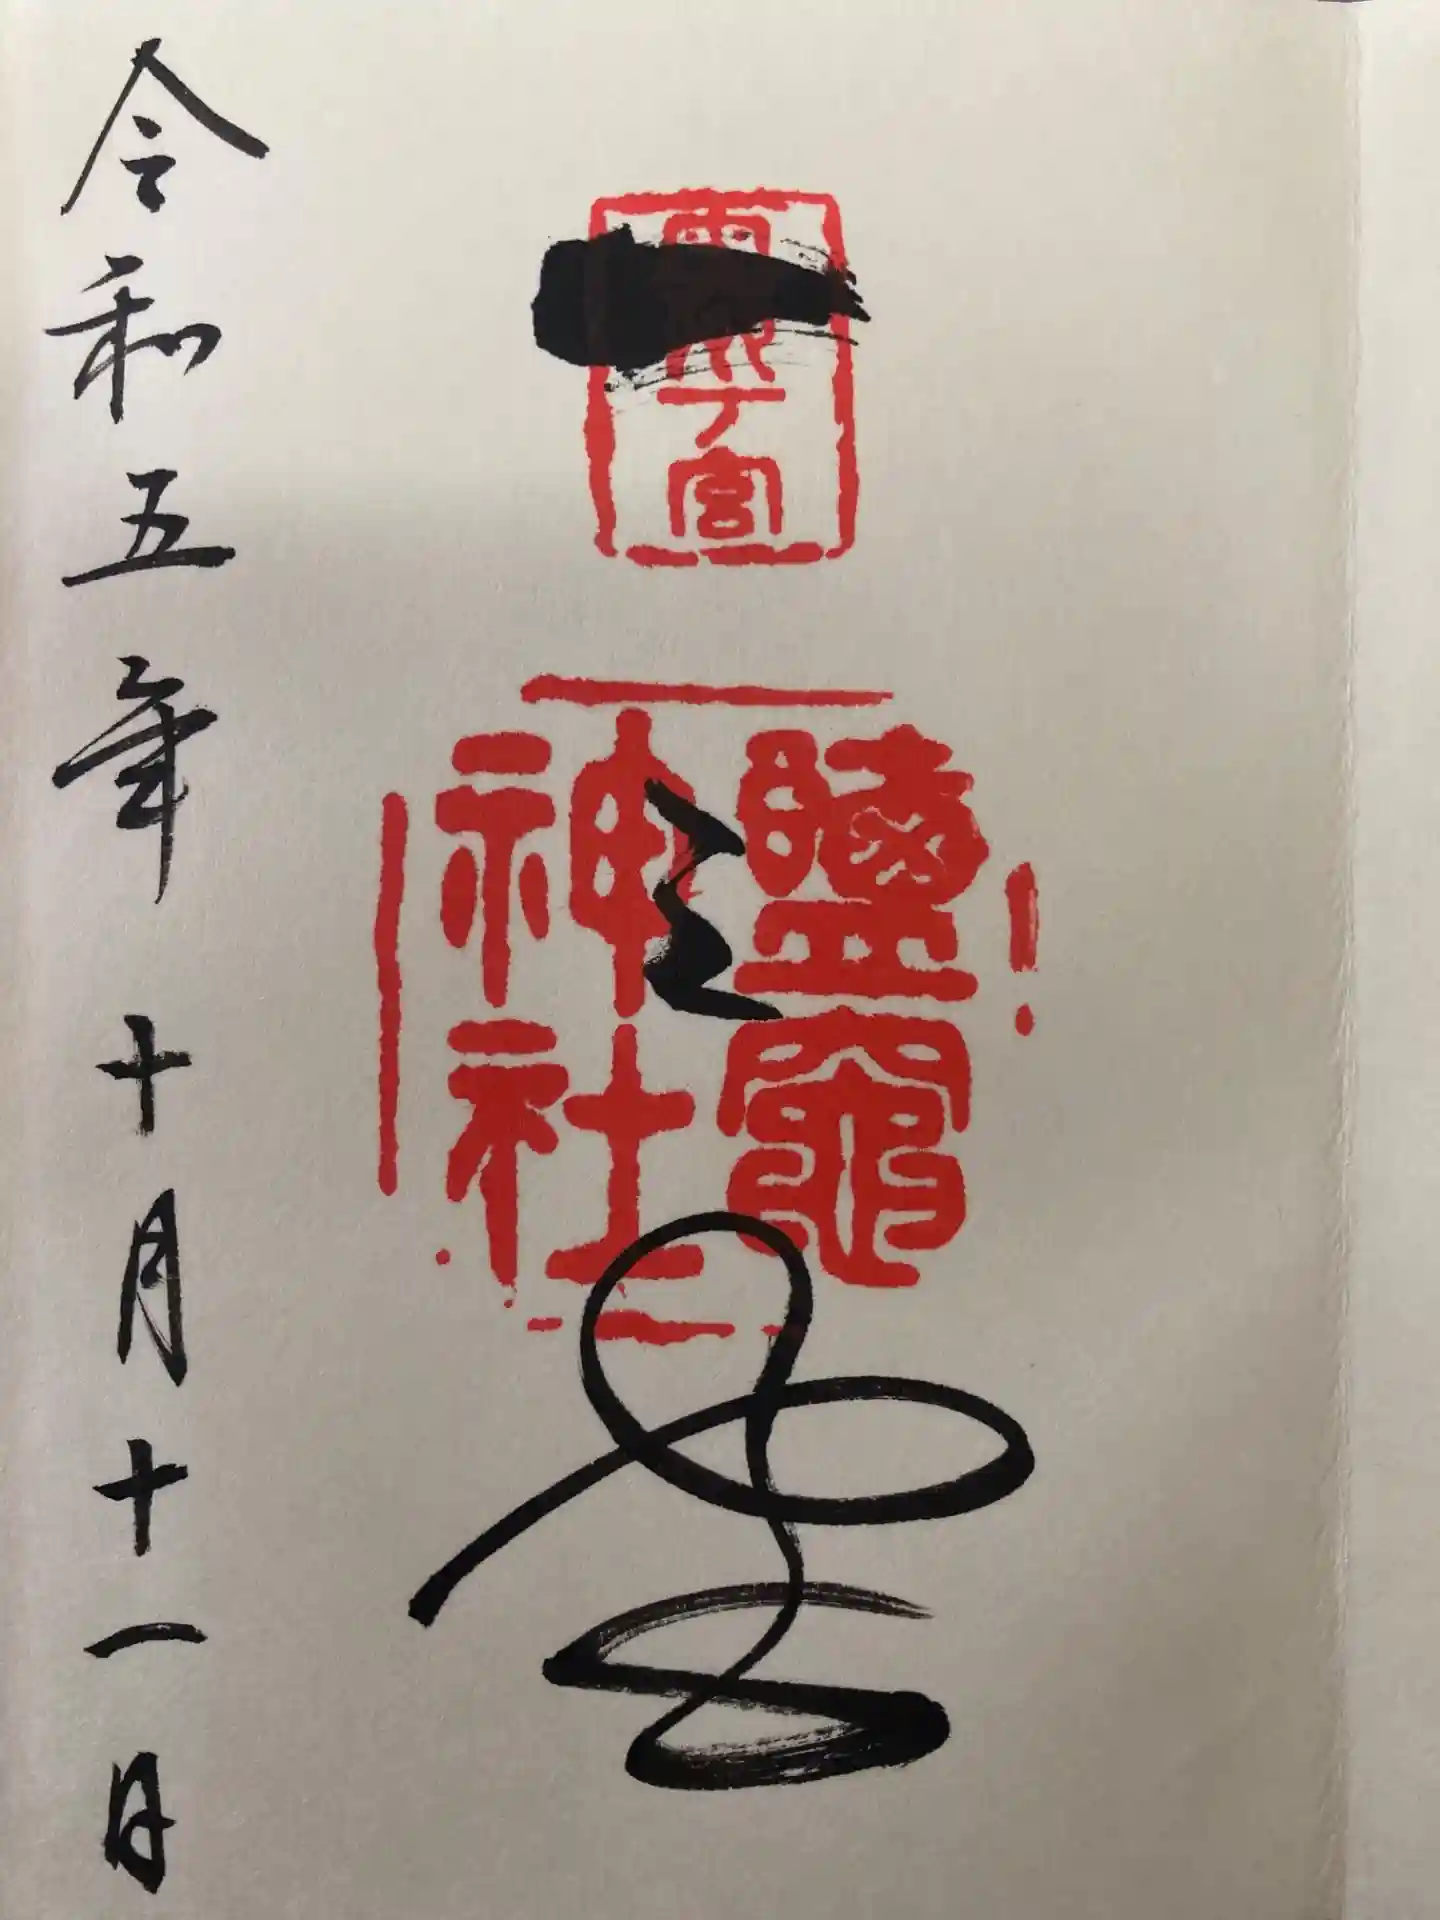 一之宮
鹽竈
神社
令和五年十月十一日